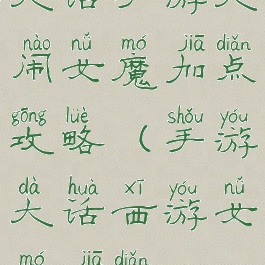 大话手游大
nào nǚ mó jiā diǎn
闹女魔加点
gōng lüè shǒu yóu
攻略(手游
dà huà xī yóu nǚ
大话西游女
mó jiā diǎn